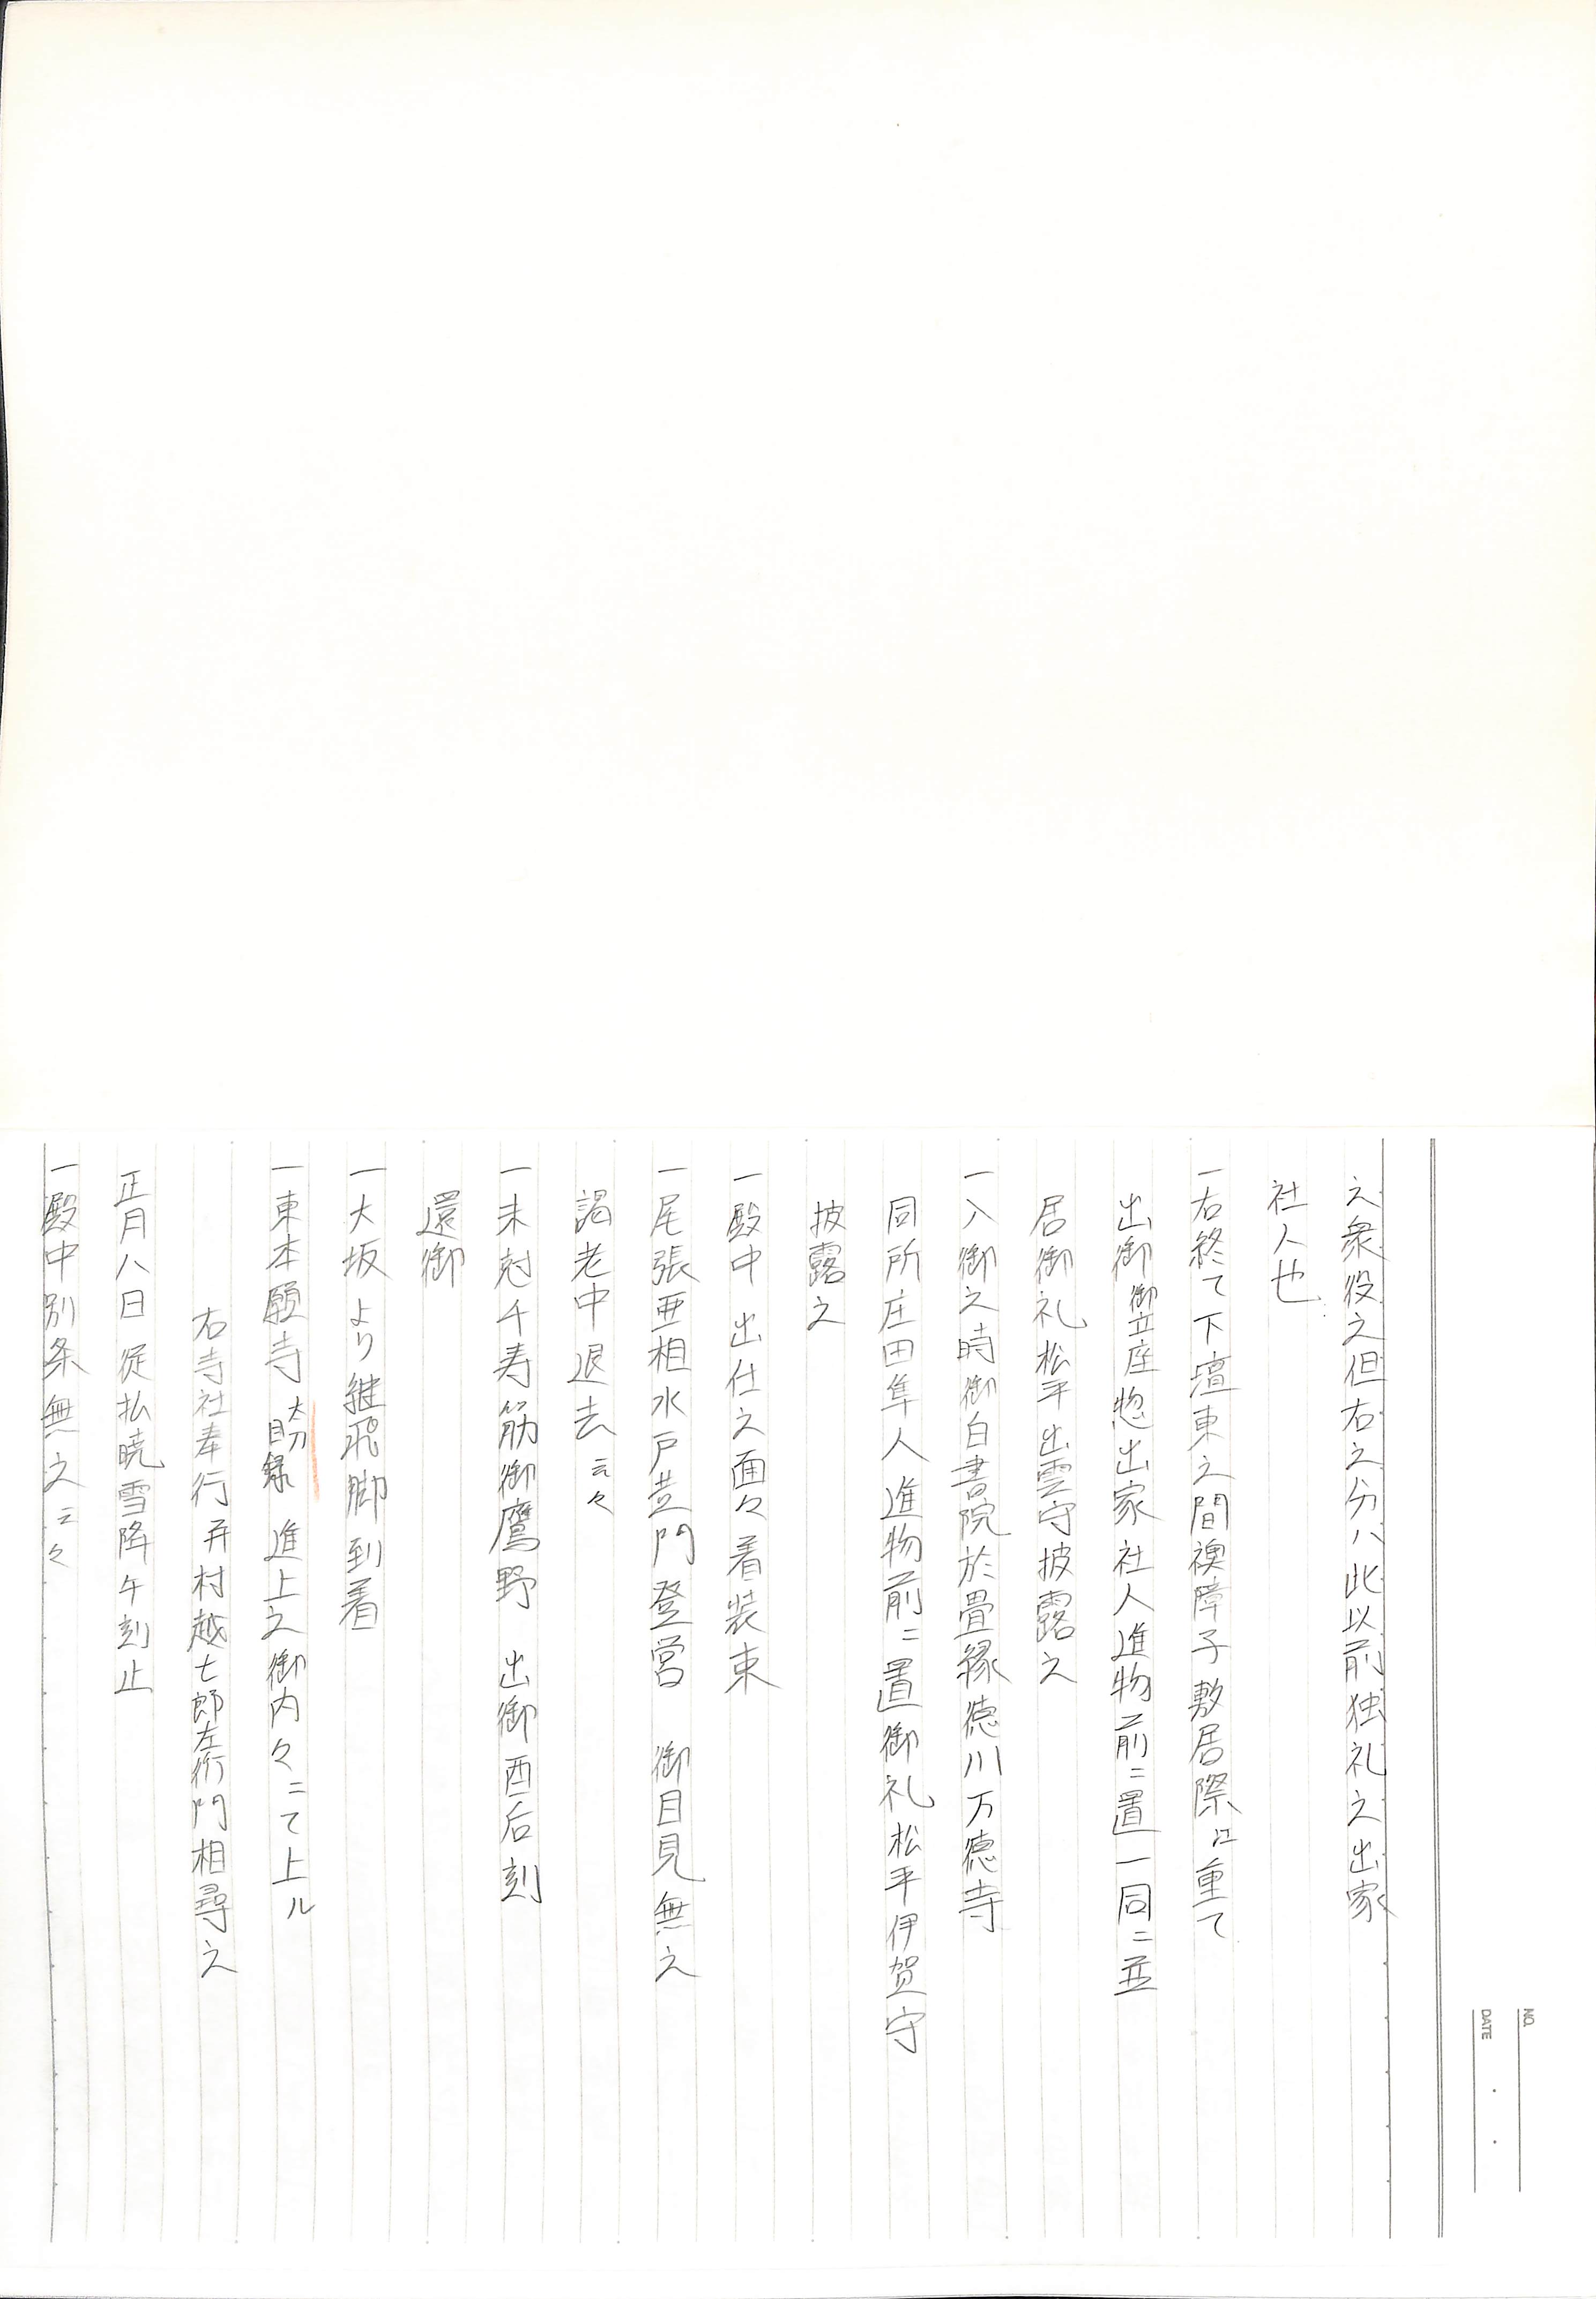 之衆役之但右之分ハ此以前独礼之出家
社人也
一右終て下壇東之間襖障子敷居際江重て
出御御立座惣出家社人進物前ニ置一同ニ並
居御礼松平出雲守披露之
一入御之時御白書院於畳縁徳川万徳寺
同所庄田隼人進物前ニ置御礼松平伊賀守
披露之
一殿中出仕之面々着装束
一尾張亜相水戸黄門登営 御目見無之
謁老中退去云々
一未尅千寿筋御鷹野 出御酉后刻
還御
一大坂より継飛脚到着
一東本願寺 太刀目録 進上之御内々ニて上ル
右寺社奉行并村越七郎左衛門相尋之
正月八日従払暁雪降午刻止
一殿中別条無之云々
NO.
DATE